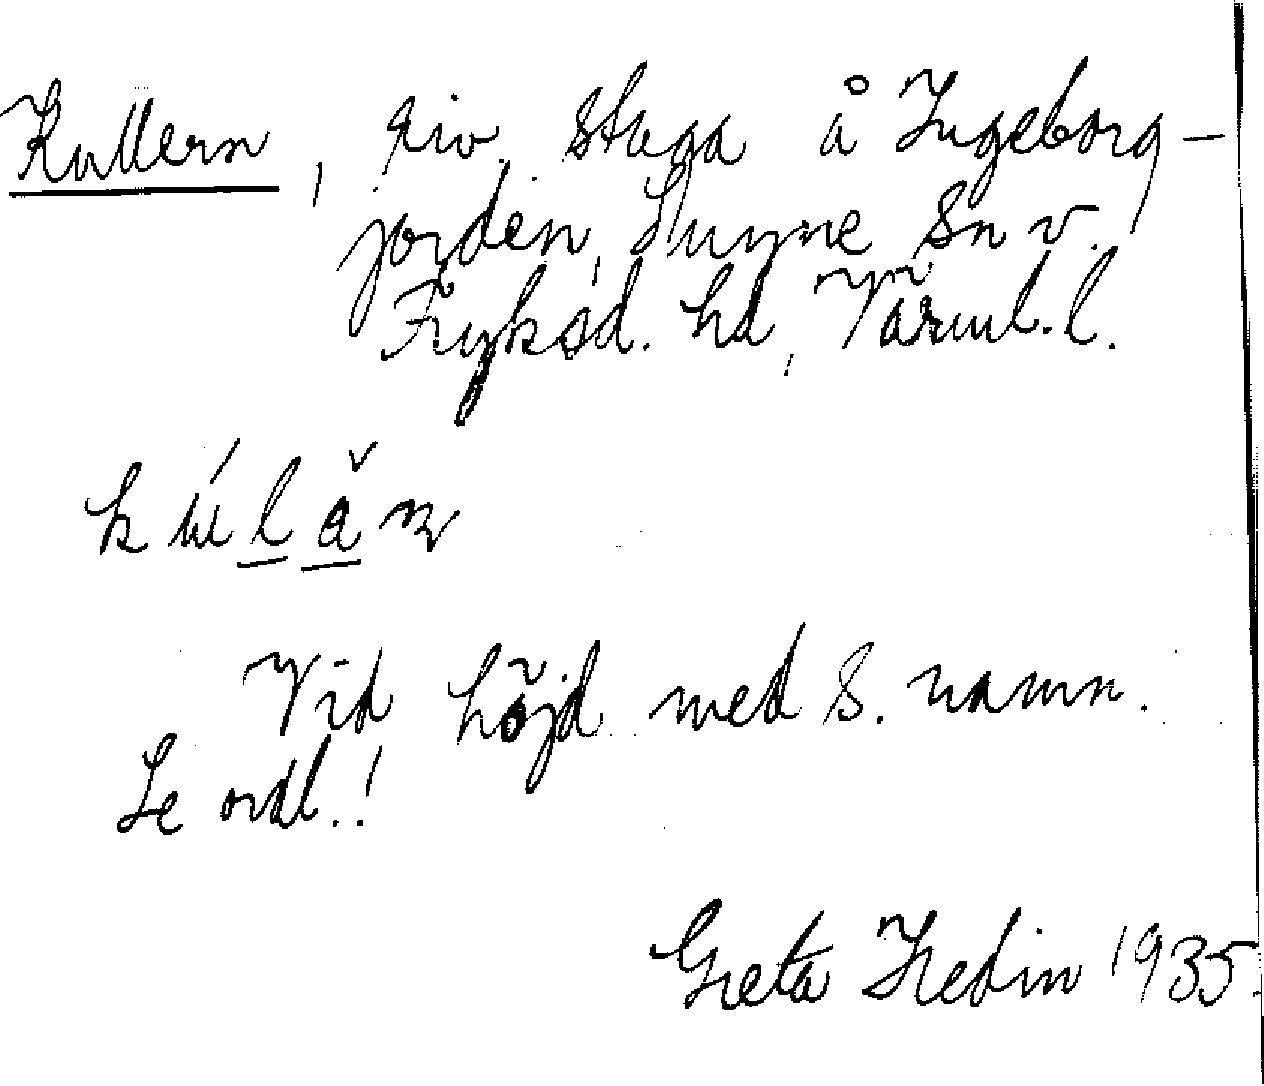 Kullern, riv. stuga å Ingeborg-
jorden, Sunne sn v.
Fryksd. hd, Värml. l.
Vid höjd med s. namn.
Se ordl.!
Greta Hedin 1935.